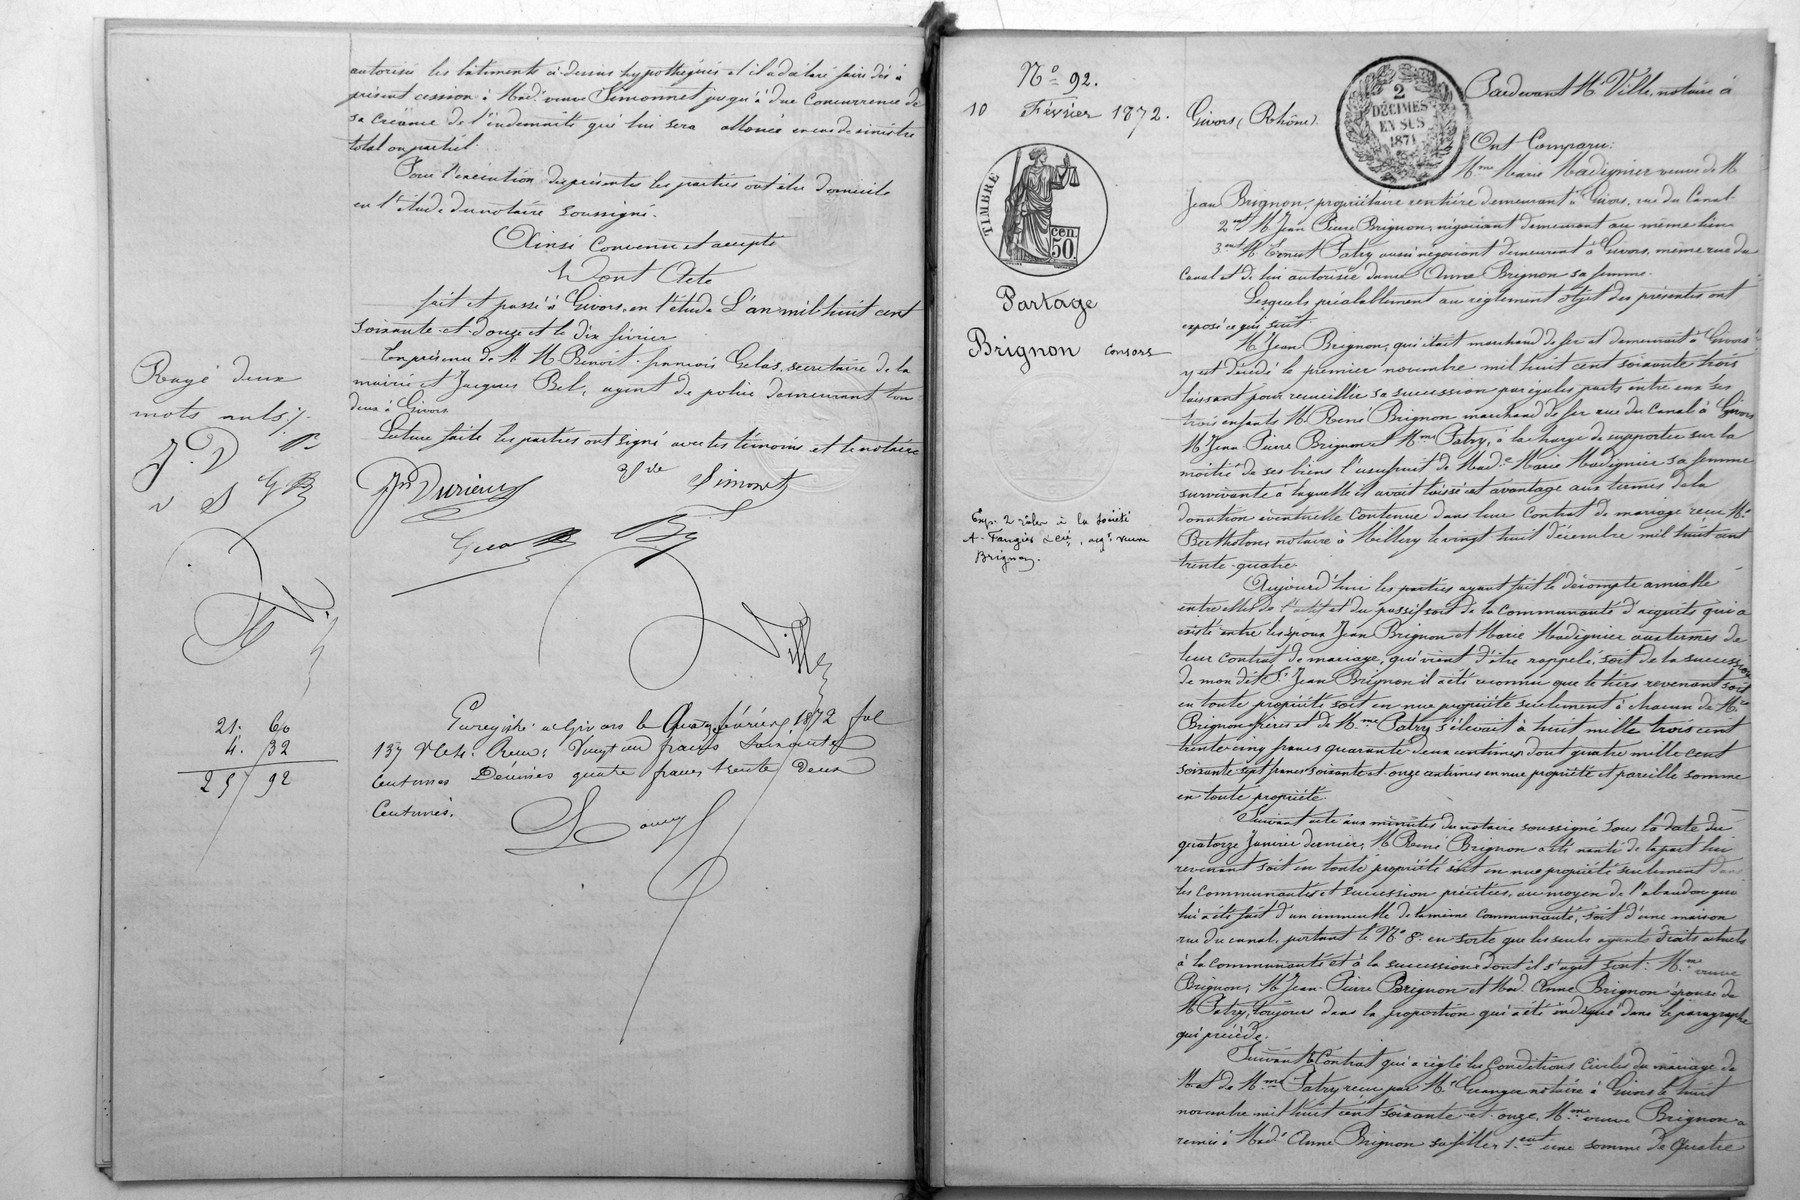 autorisée les bâtiments ci-dessus hypothéqués et il a déclaré faire dès à
présent cession à Mad. veuve Simonnet jusqu'à due concurrence de
sa créance de l'indemnité qui lui sera allouée en cas de sinistre
total ou partiel.
Pour l'exécution des présentes les parties ont élu domicile
en l'étude du notaire soussigné.
Ainsi convenu et accepté
Dont Acte
fait et passé à Givors, en l'étude L'an mil huit cent
soixante-et-douze et le dix février
En présence de M. M. Benoit françois Gelas, secrétaire de la
mairie et Jacques Bel, agent de police demeurant tous
deux à Givors
Lecture faite les parties ont signé avec les témoins et le notaire
Rayé deux
mots nuls
Durieux
Vve Simonet
Ville
Enregistré à Givors le février 1872 fol
137 Reçu: Vingt un francs soixante
centimes Décimes quatre francs trente deux
Centimes.
21. 60
4. 32
25 92
No 92.
10 Février 1872.
TIMBRE
cen
50.
Partage
Brignon consors
Exp. 2 rôles à la Société
A. & Cie, veuve
Brignon.
2
DÉCIMES
EN SUS
1871
Pardevant Me Ville, notaire à
Givors (Rhône).
Ont Comparu:
Mme Marie Madignier veuve de M.
Jean Brignon, propriétaire rentière demeurant à Givors, rue du Canal.
2ent M. Jean Pierre Brignon, négociant demeurant au même lieu
3ent M. Ernest Patry aussi négociant demeurant à Givors, même rue du
Canal et de lui autorisée dame Anne Brignon sa femme.
Lesquels préalablement au règlement objet des présentes ont
exposé ce qui suit.
M. Jean Brignon, qui était marchand de fer et demeurait à Givors
y est décédé le premier novembre mil huit cent soixante trois
laissant pour recueillir sa succession par égales parts entre eux ses
trois enfants M. René Brignon marchand de fer rue du Canal à Givors
M. Jean Pierre Brignon et Mme Patry, à la charge de supporter sur la
moitié de ses biens l'usufruit de Made Marie Madignier sa femme
survivante à laquelle il avait laissé cet avantage aux termes de la
donation éventuelle contenue dans leur contrat de mariage reçu Me
Berthelon, notaire à Millery le vingt-huit décembre mil huit cent
trente-quatre.
Aujourd'hui les parties ayant fait le décompte amiable
entre elles de l'actif et du passif soit de la communauté d'acquêts qui a
existé entre les époux Jean Brignon et Marie Madignier aux termes de
leur contrat de mariage, qui vient d'être rappelé, soit de la succession
de mon dit Sr Jean Brignon il a été reconnu que le tiers revenant soit
en toute propriété soit en nue propriété seulement à chacun de Mrs
Brignon frères et de Mme Patry s'élevait à huit mille trois cent
trente-cinq francs quarante deux centimes dont quatre mille cent
soixante sept francs soixante-et-onze centimes en nue propriété et pareille somme
en toute propriété.
Suivant acte aux minutes du notaire soussigné sous la date du
quatorze Janvier dernier, M. René Brignon a été nanti de la part lui
revenant soit en toute propriété soit en nue propriété seulement dans
les communauté et succession précitées, au moyen de l'abandon qui
lui a été fait d'un immeuble de la même communauté, soit d'une maison
rue du canal, portant le No 8. en sorte que les seuls ayants droits actuels
à la communauté et à la succession dont il s'agit sont: Mme veuve
Brignon, M. Jean-Pierre Brignon et Mad. Anne Brignon épouse de
M. Patry, toujours dans la proportion qui a été indiqué dans le paragraphe
qui précède.
Suivant Contrat qui a réglé les conditions civiles du mariage de
M. et de Mme Patry reçu par Me Granger notaire à Givors le huit
novembre mil huit cent soixante-et-onze, Mme veuve Brignon a
remis à Mad. Anne Brignon sa fille, 1ent une somme de quatre